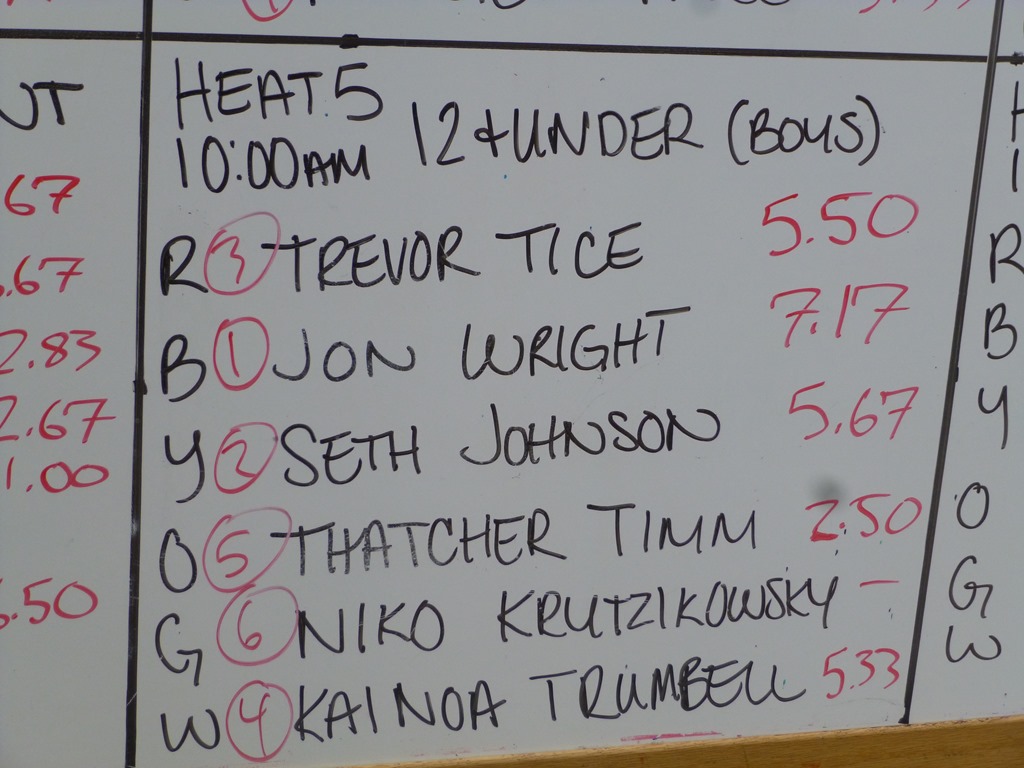 UT
.67
.67
2.83
2.67
1.00
.50
HEAT 5
10:00AM 12 & UNDER (BOYS)
R 3 TREVOR TICE 5.50
B 1 JON WRIGHT 7.17
Y 2 SETH JOHNSON 5.67
O 5 THATCHER TIMM 2.50
G 6 NIKO KRUTZIKOWSKY –
W 4 KAINOA TRUMBELL 5.33
R
B
Y
O
G
W